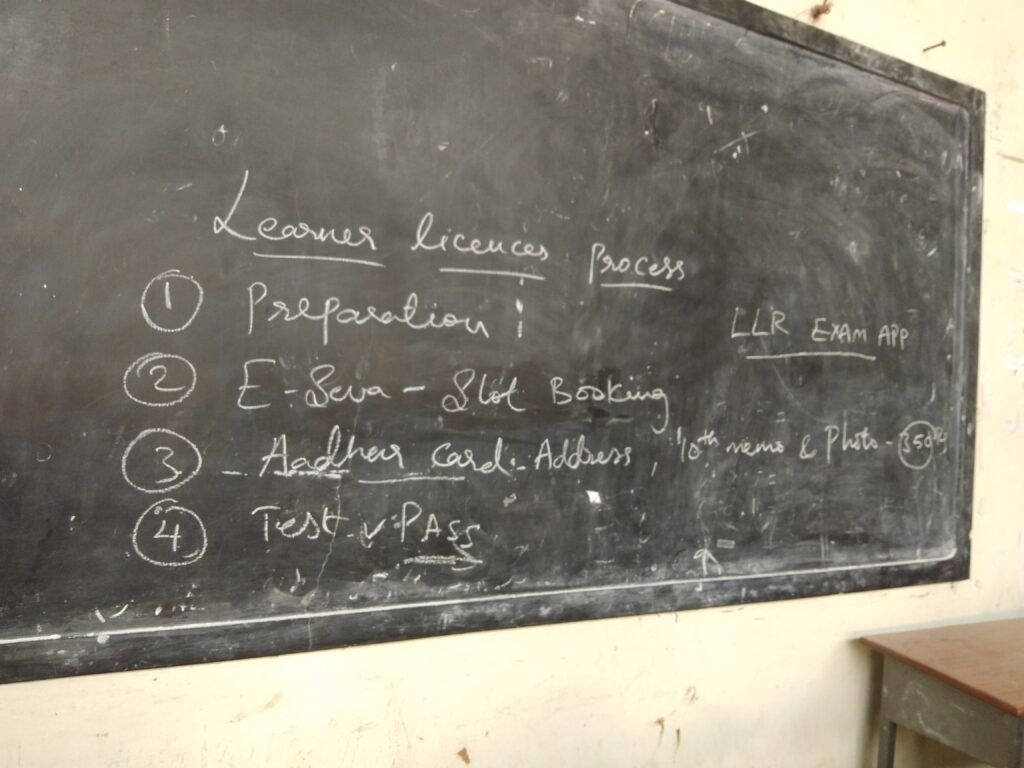 Learner licences Process
① Preparation
LLR EXAM APP
② E-Seva - Slot Booking
③ - Aadhar card - Address, 10th memo & Photo - 350
④ Test ✓ PASS